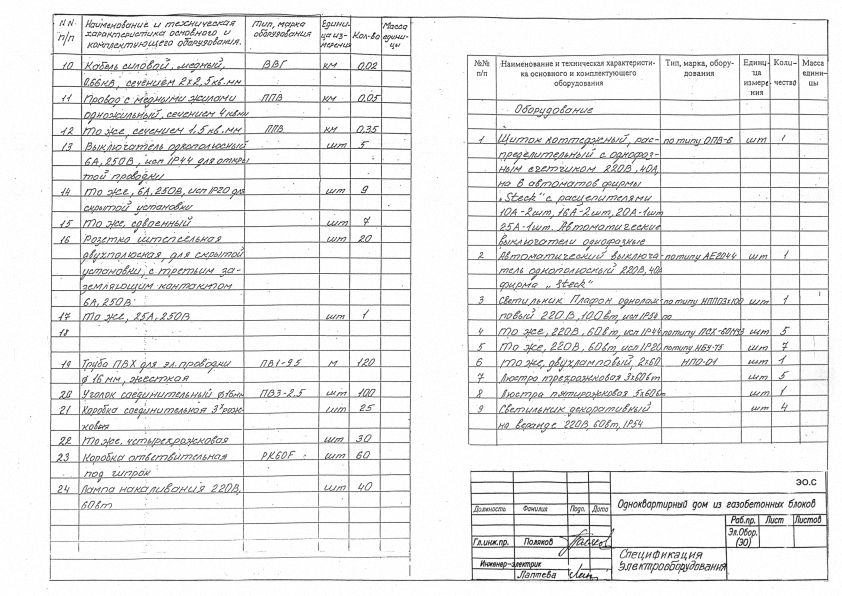 №№ п/п | Наименование и техническая характеристика основного и комплектующего оборудования. | Тип, марка оборудования | Единица измерения | Кол-во | Масса единицы
10 | Кабель силовой, медный, | ВВГ | км | 0,02
0,66кВ, сечением 2х2,5 кв.мм
11 | Провод с медными жилами | ППВ | км | 0,05
одножильный, сечением 4 кв.мм
12 | То же, сечением 1,5 кв.мм | ППВ | км | 0,35
13 | Выключатель однополюсный | шт | 5
6А, 250В, исп IP44 для откры
той проводки
14 | То же, 6А, 250В, исп IP20 для | шт | 9
скрытой установки
15 | То же, сдвоенный | шт | 7
16 | Розетка штепсельная | шт | 20
двухполюсная, для скрытой
установки, с третьим за-
земляющим контактом
6А, 250В
17 | То же, 25А, 250В | шт | 1
18
19 | Труба ПВХ для эл. проводки | м | 120
ø 16мм, жесткая
20 | Уголок соединительный ø16мм | ПВ3-2,5 | шт | 100
21 | Коробка соединительная 3хрож- | шт | 25
ковая
22 | То же, четырехрожковая | шт | 30
23 | Коробка ответвительная | шт | 60
под гипрок
24 | Лампа накаливания 220В, | шт | 40
60вт
№№ п/п | Наименование и техническая характеристи-ка основного и комплектующего оборудования | Тип, марка, обору-дования | Единица измере ния | Коли-чество | Масса едини-цы
Оборудование
1 | Щиток коттеджный, рас- | по типу ОПВ-6 | шт | 1
пределительный с однофаз-
ным счетчиком 220В, 40А,
на 6 автоматов фирмы
„Steck" с расцепителями
10А-2шт, 16А-2шт, 20А-1шт
25А-1шт. Автоматические
выключатели однофазные
2 | Автоматический выключа- | по типу АЕ2044 | шт | 1
тель однополюсный 220В, 40А
фирма „Steck"
3 | Светильник Плафон однолам- | по типу НПП03х100 | шт | 1
повый 220В, 100вт, исп IP54 | по
4 | То же, 220В, 60вт, исп IP44 | шт | 5
5 | То же, 220В, 60вт, исп IP20 | шт | 7
6 | То же, двухламповый, 2х60 | НПО-01 | шт | 1
7 | Люстра трехрожковая 3х60вт | шт | 5
8 | Люстра пятирожковая 5х60вт | шт | 1
9 | Светильник декоративный | шт | 4
на веранде 220В, 60вт, IP54
ЭО.С
Должность | Фамилия | Подп. | Дата
Одноквартирный дом из газобетонных блоков
Раб.пр. | Лист | Листов
Эл.Обор. (ЭО)
Гл.инж.пр. | Поляков
Спецификация
электрооборудования
Инженер-электрик
Лаптева